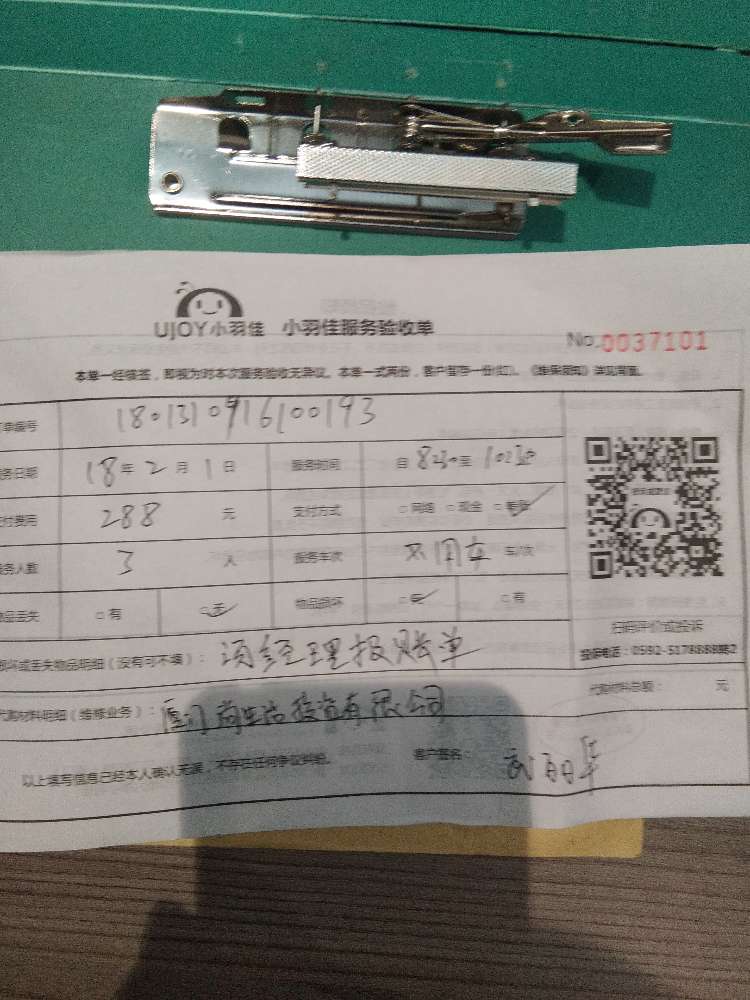 UJOY小羽佳 小羽佳服务验收单
No.0037101
本单一经核签，即视为对本次服务验收无异议。本单一式两份，客户暂存一份(红)。《维保须知》详见背面。
单编号 1801310916100193
务日期 18年2月1日 服务时间 自8:30至10:30
付费用 288元 支付方式 □网络 □现金 □
务人数 3人 服务车次 不用车 车/次
物品丢失 □有 □无 物品损坏 □无 □有
损坏或丢失物品明细（没有可不填）： 经理报账单
扫码评价或投诉
投诉电话：0592-5178888转2
代购材料明细（维修业务）： 厦门尚生活投资有限公司
代购材料总额： 元
以上填写信息已经本人确认无误，不存在任何争议纠纷。 客户签名：